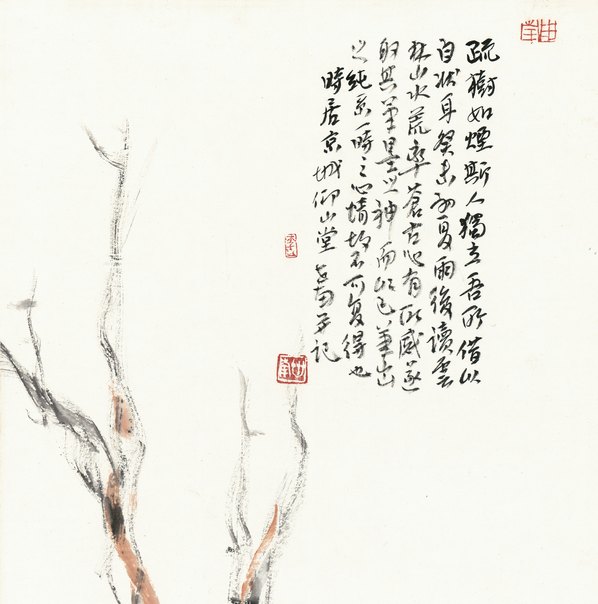 疏樹如煙斯人獨立吾所借以
自狀耳癸未初夏雨後讀雲
林山水荒率蒼古心有所感遂
取其筆墨之神而以己筆出
之純系一時之心情故不可复得也
時居京城仰山堂 子記